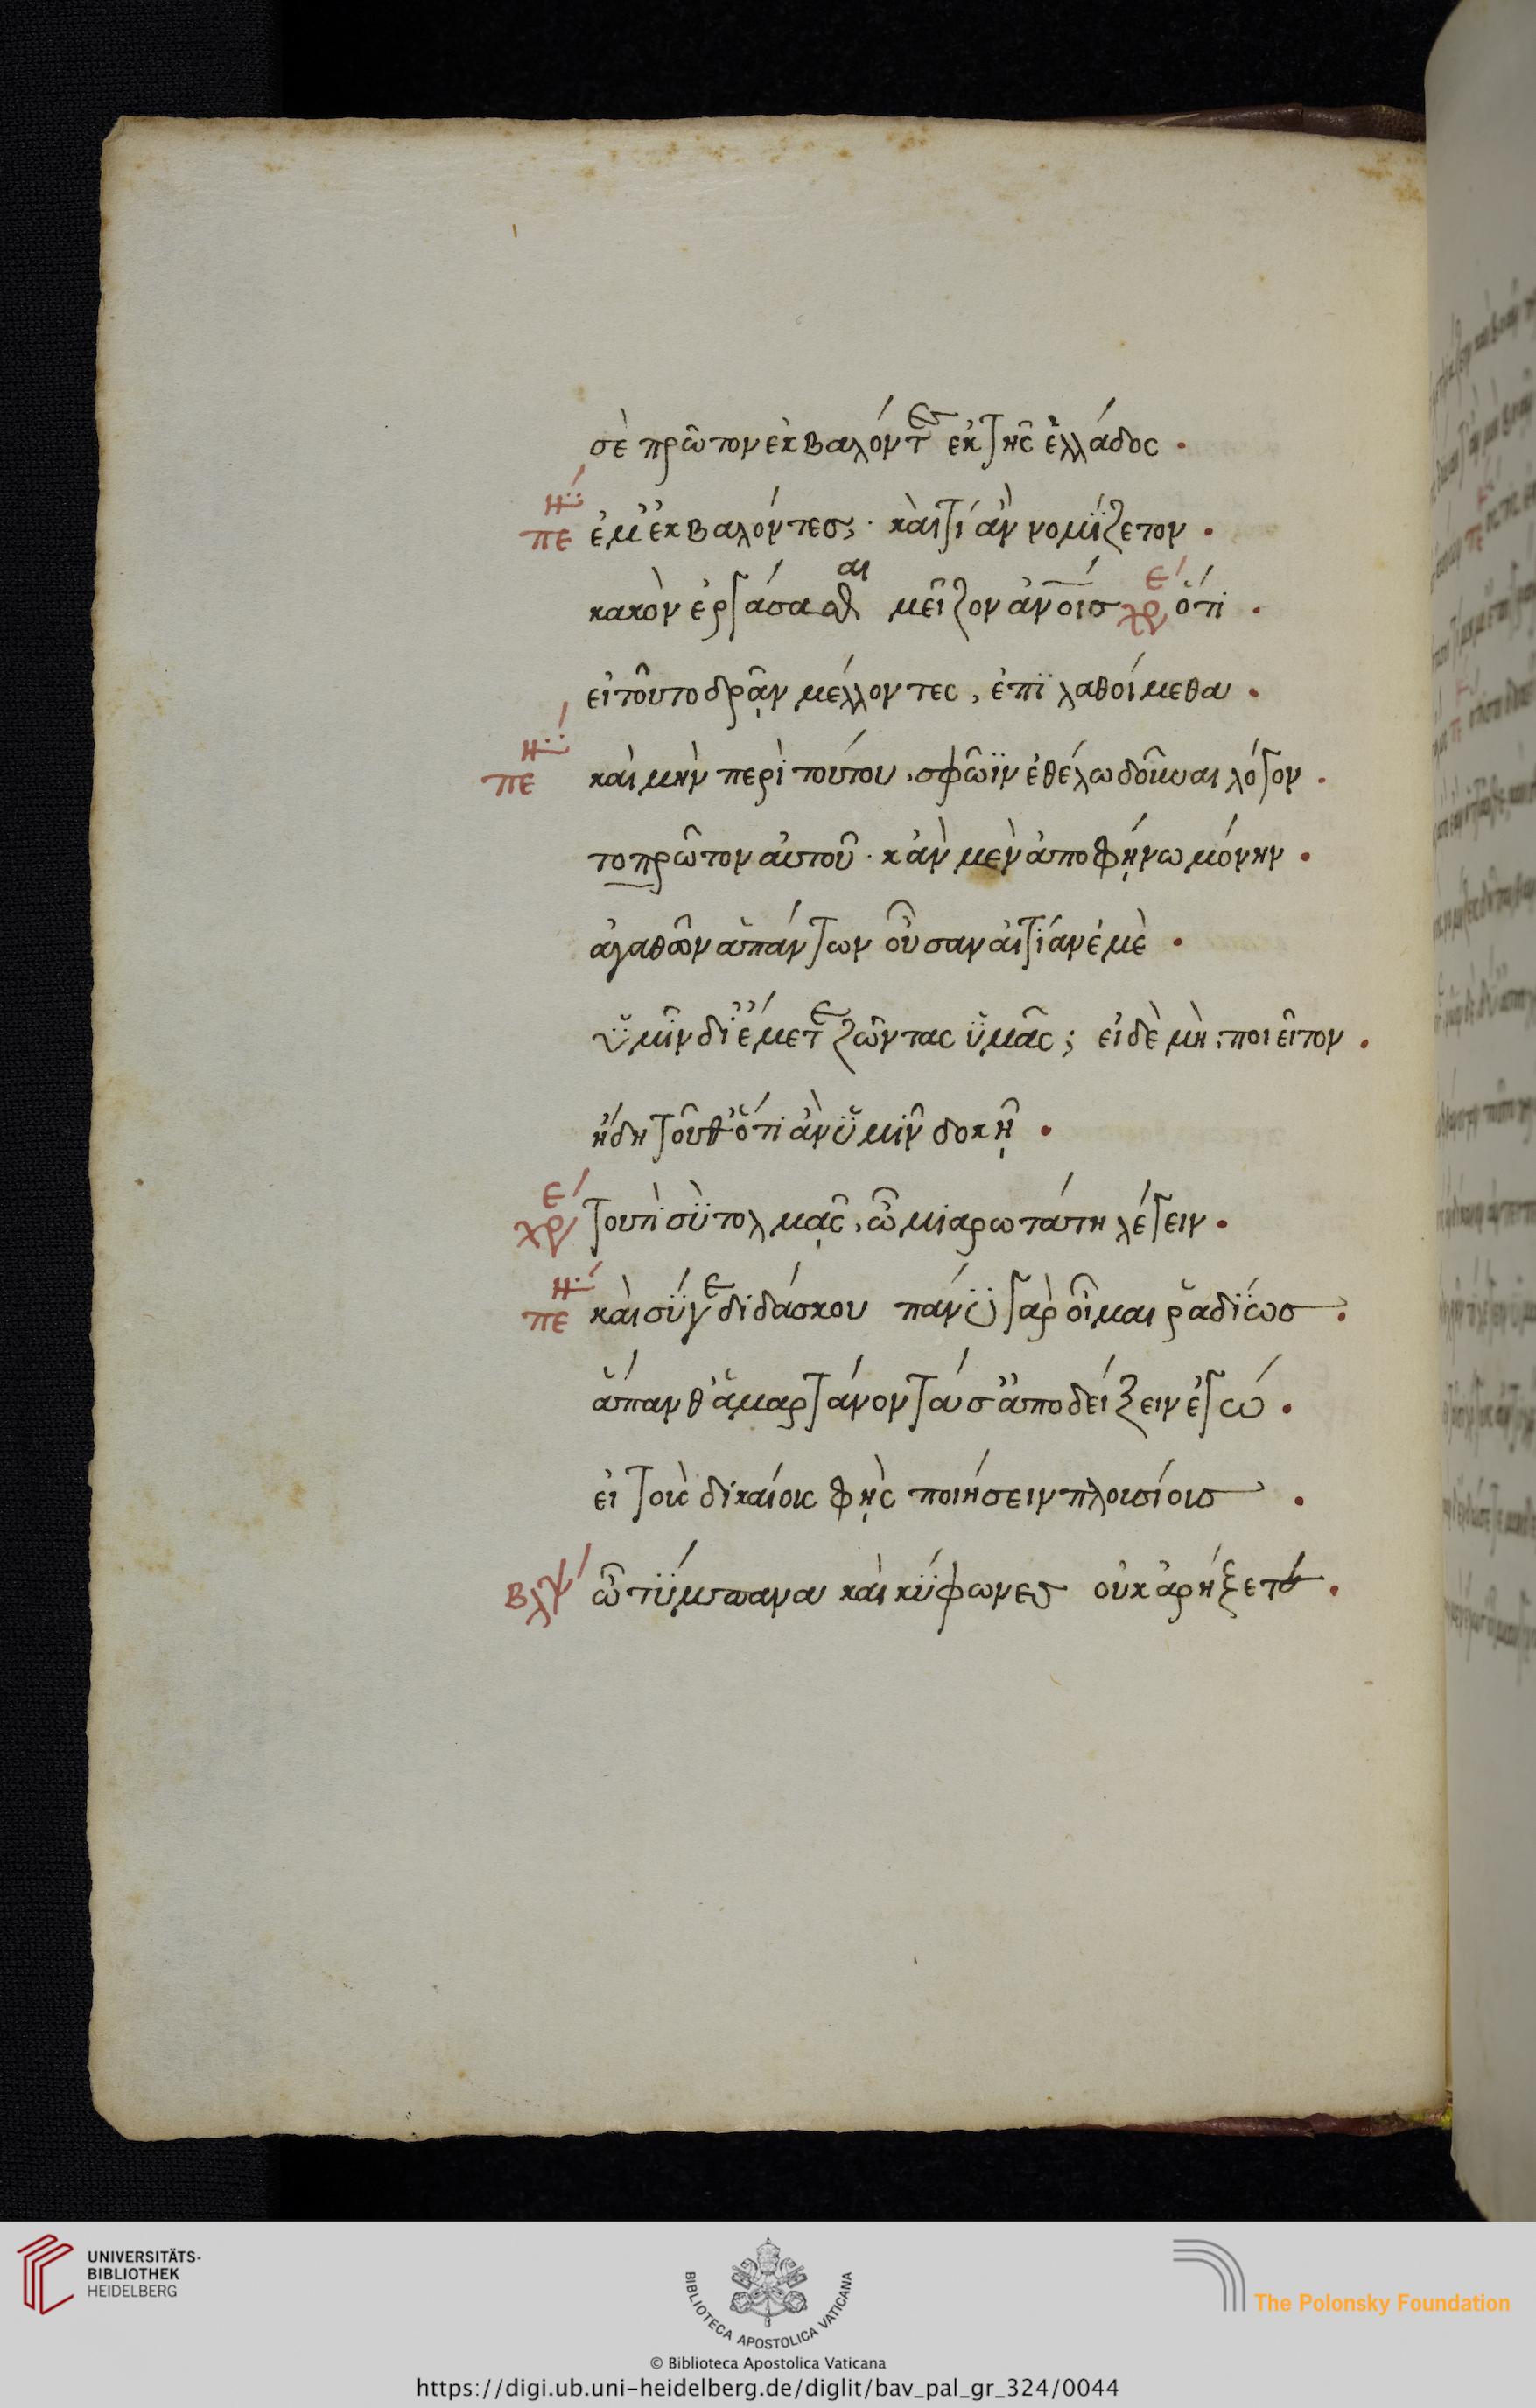 σὲ πρῶτον ἐκβαλόντες ἐκ τῆς ἑλλάδος .
πε ἔμ' ἐκβαλόντες; · καὶ τί ἂν νομίζετον .
κακὸν ἐργάσασθαι μεῖζον ἀνοις χρε ὅτι .
εἰ τοῦτο δρᾷν μέλλοντες, ἐπϊλαθοίμεθα .
πε καὶ μὴν περὶ τούτου, σφῶϊν ἐθέλω δοῦναι λόγον .
το πρῶτον αὐτοῦ · κἀν μὲν ἀποφήνω μόνην .
ἀγαθῶν ἁπάντων οὖσαν αἰτίαν ἐμὲ .
ὑμῖν δι' ἐμέ τε ζῶντας ὑμᾶς; εἰ δὲ μὴ· ποιεῖτον .
ἤδη τοῦθ' ὅτι ἂν ὑμῖν δοκῇ .
χρε τουτὶ σὺ τολμᾷς, ὦ μιαρωτάτη λέγειν .
πε καὶ σύ γε διδάσκου πάνυ γὰρ οἶμαι ῥαδίως .
ἅπανθ' ἁμαρτάνοντά σ' ἀποδείξειν ἐγώ .
εἰ τοὺς δικαίους φῂς ποιήσειν πλουσίους .
βλψ ὦ τύμπανα καὶ κύφωνες οὐκ ἀρήξετε .
UNIVERSITÄTS-
BIBLIOTHEK
HEIDELBERG
BIBLIOTECA APOSTOLICA VATICANA
The Polonsky Foundation
© Biblioteca Apostolica Vaticana
https://digi.ub.uni-heidelberg.de/diglit/bav_pal_gr_324/0044